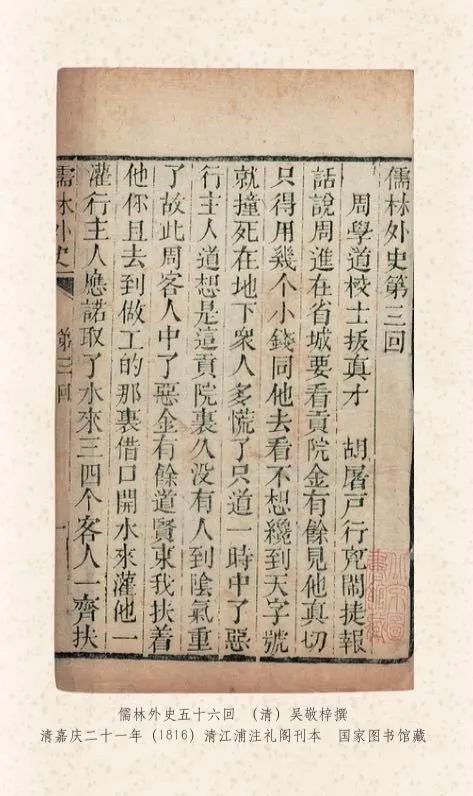 儒林外史第三回
周學道校士拔真才　胡屠戸行兇鬧捷報
話說周進在省城要看貢院金有餘見他真切
只得用幾个小錢同他去看不想纔到天字號
就撞死在地下衆人多慌了只道一時中了惡
行主人道想是這貢院裏久没有人到陰氣重
了故此周客人中了惡金有餘道賢東我扶着
他你且去到做工的那裏借口開水來灌他一
灌行主人應諾取了水來三四个客人一齊扶
儒林外史
第三回
一
儒林外史五十六回 （清）吴敬梓撰
清嘉庆二十一年（1816）清江浦注礼阁刊本 国家图书馆藏